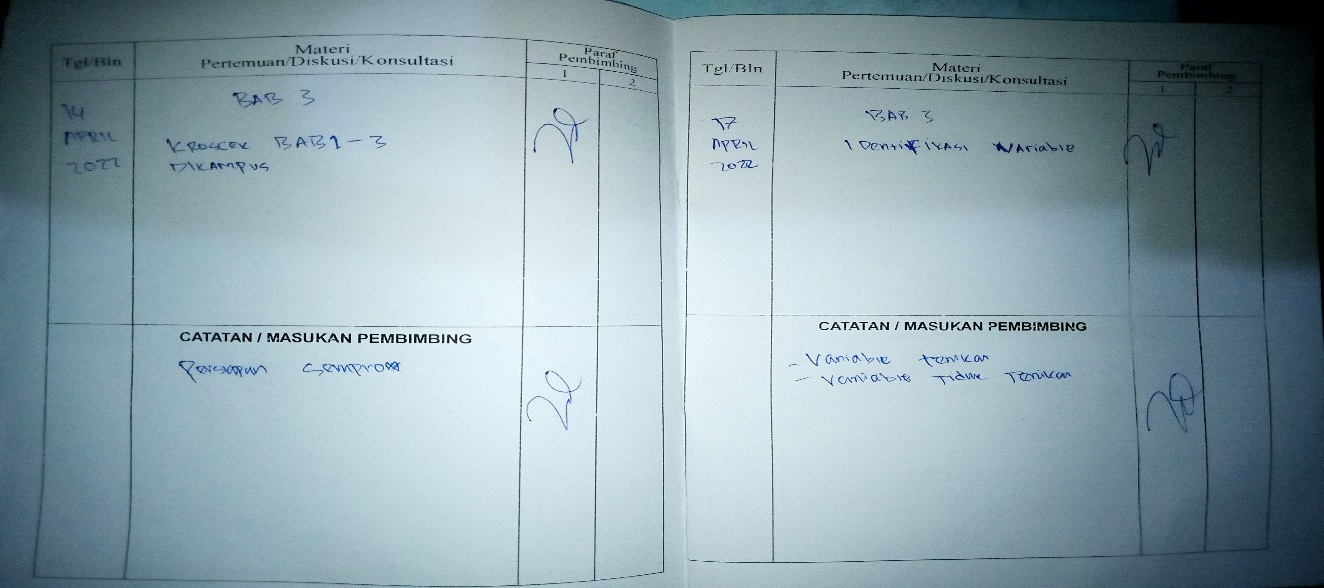 Tgl/Bln
Materi
Pertemuan/Diskusi/Konsultasi
Paraf
Pembimbing
1
2
14
APRIL
2022
BAB 3
KROSCEK BAB 1 - 3
DIKAMPUS
CATATAN / MASUKAN PEMBIMBING
Persiapan Sempro
Tgl/Bln
Materi
Pertemuan/Diskusi/Konsultasi
Paraf
Pembimbing
1
2
17
APRIL
2022
BAB 3
IDentiFIKASI VAriable
CATATAN / MASUKAN PEMBIMBING
- Variable terikat
- Variable Tidak Terikat